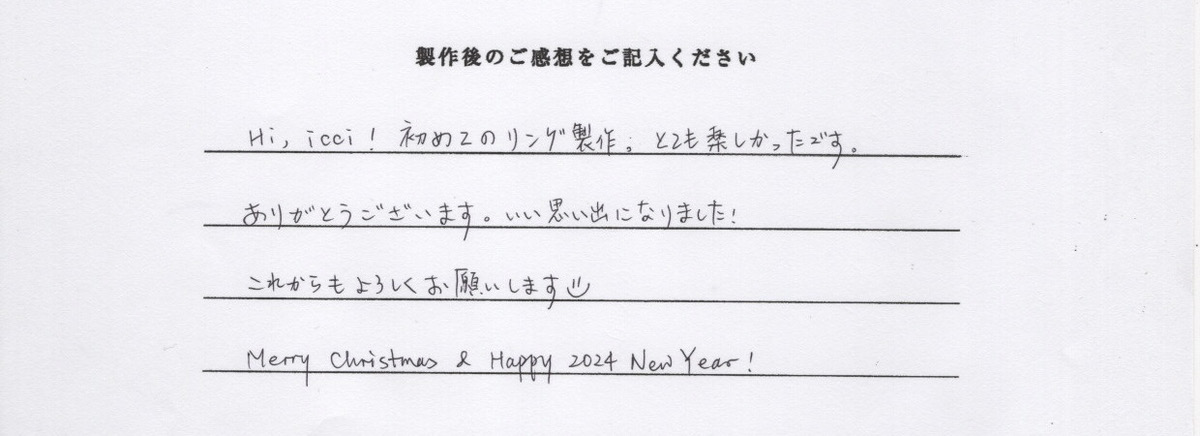 製作後のご感想をご記入ください
Hi, icci! 初めてのリング製作。とても楽しかったです。
ありがとうございます。いい思い出になりました!
これからもよろしくお願いします
Merry Christmas & Happy 2024 New Year!